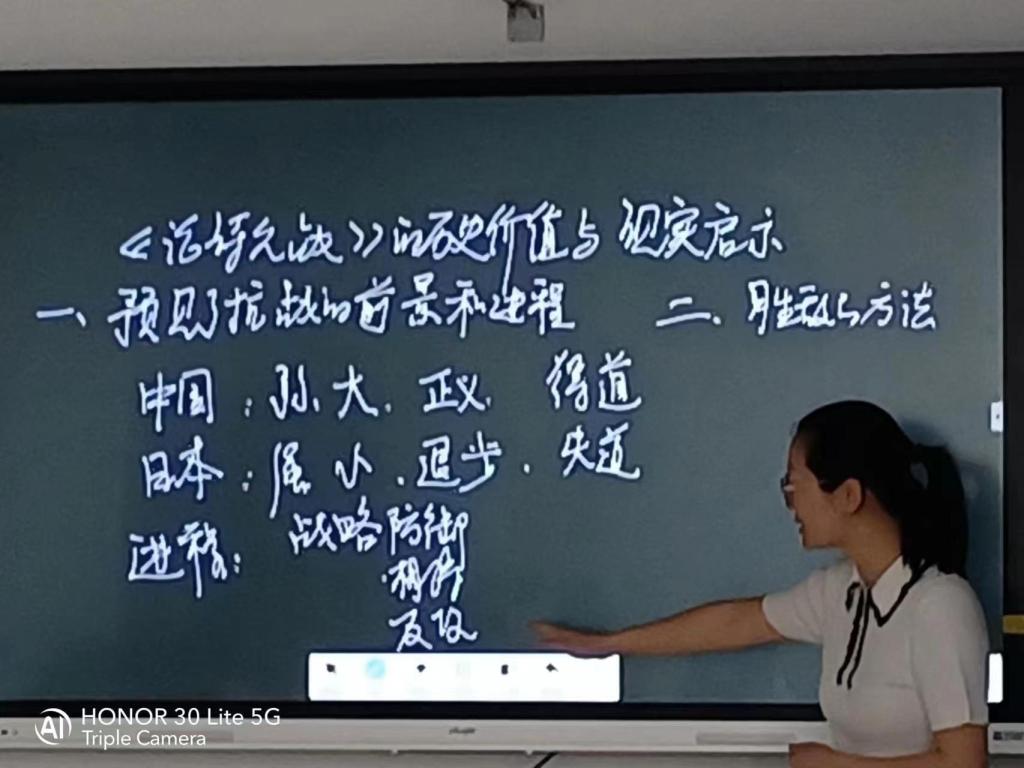 《论持久战》的历史价值与现实启示
一、预见了抗战的前景和进程
二、胜敌与方法
中国：弱、大、正义、得道
日本：强、小、退步、失道
进程：战略防御
相持
反攻
HONOR 30 Lite 5G
Triple Camera